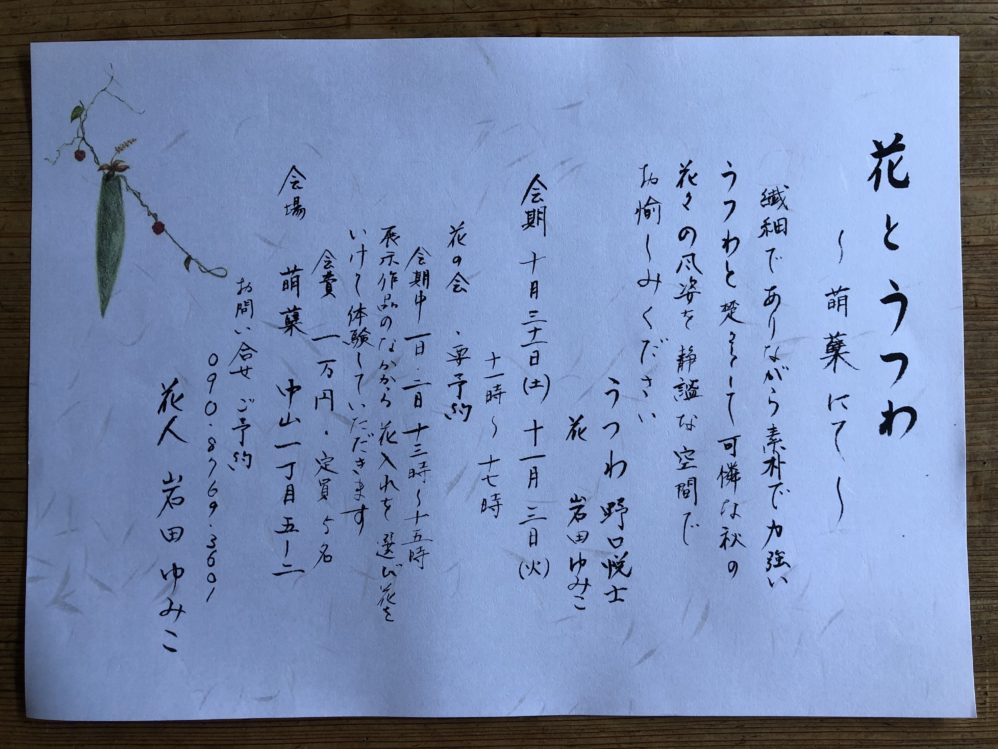 花とうつわ
～萌蘖にて～
繊細でありながら素朴で力強い
うつわと楚々として可憐な秋の
花々の風姿を静謐な空間で
お愉しみください
うつわ 野口悦士
花 岩田ゆみこ
会期 十月三十一日(土) 十一月三日(火)
十一時～十七時
花の会・要予約
会期中 一日・二日 十三時～十五時
展示作品のなかから花入れを選び花を
いけて体験していただきます
会費 一万円・定員5名
会場 萌蘖 中山一丁目五ー二
お問い合せ ご予約
090.8769.3601
花人 岩田ゆみこ